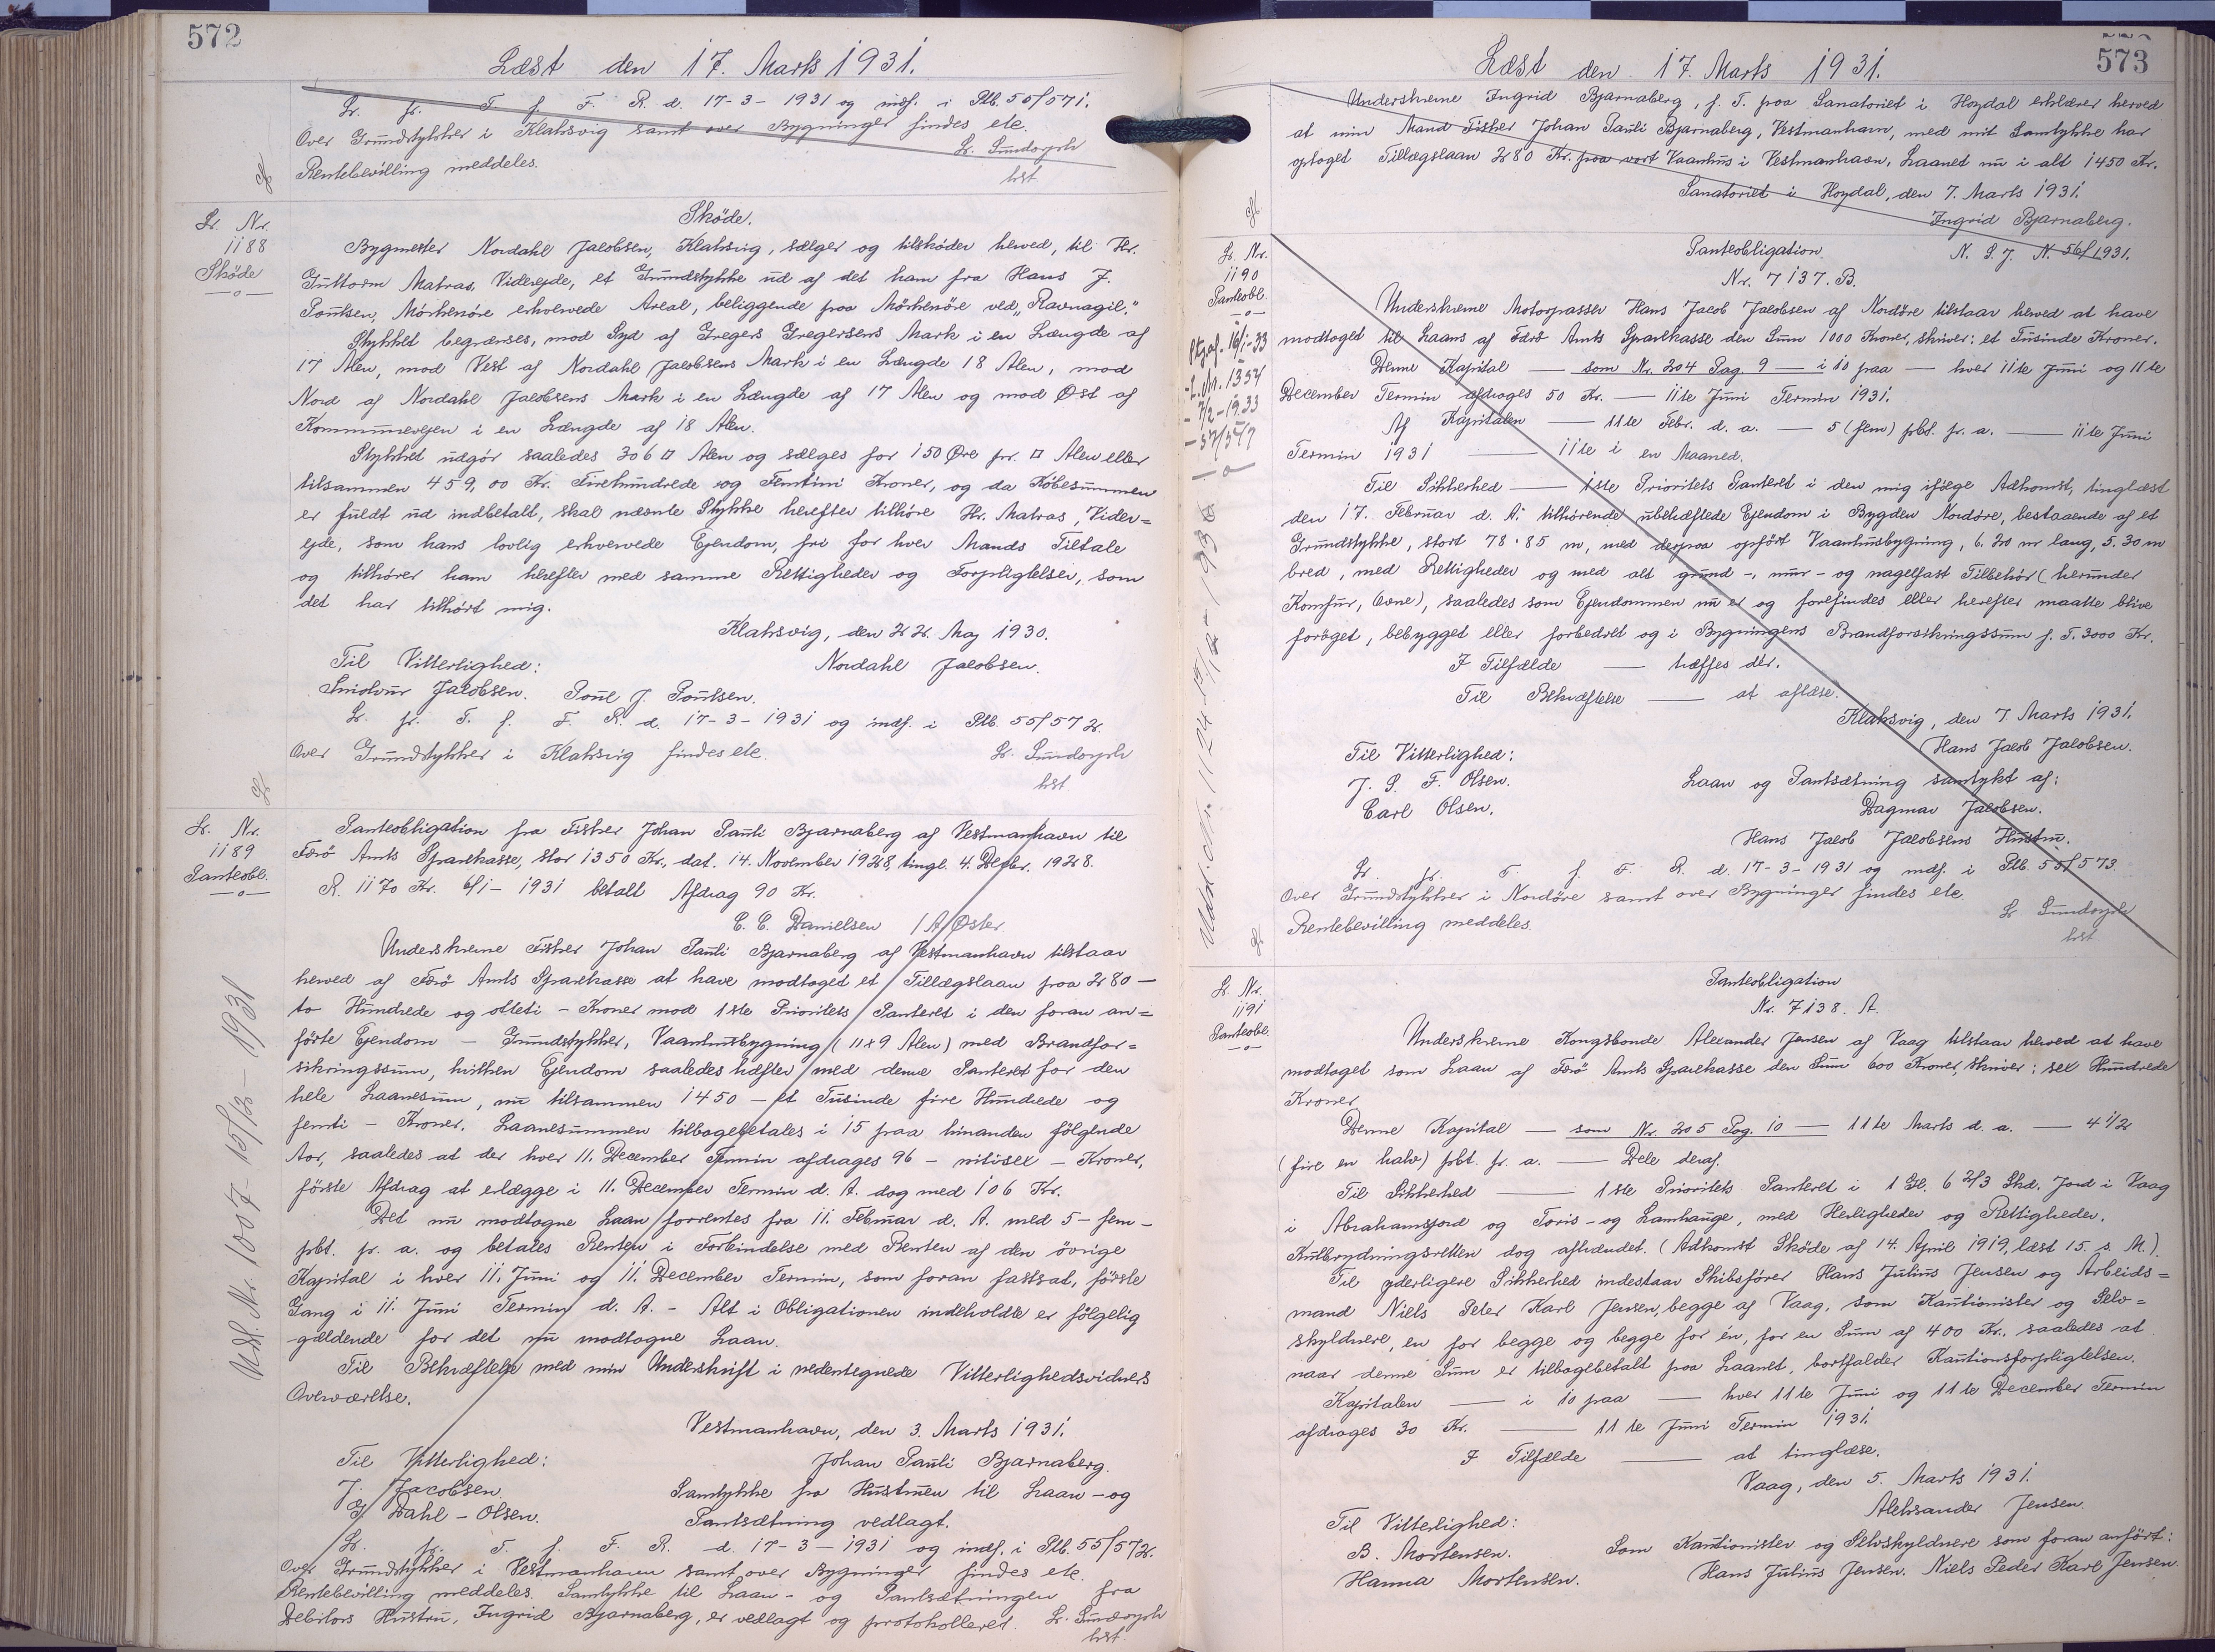 572
Læst den 17. Marts 1931.
Lr. fr. T. f. F. R. d. 17-3-1931 og indf. i Ptb. 55/571.
Over Grundstykker i Klaksvig samt over Bygninger findes etc.
Rentebevilling meddeles.
Lr. Nr.
1188
Skøde
Skøde.
Bygmester Nordahl Jacobsen, Klaksvig, sælger og tilskøder herved, til Hr.
Guttorm Matras, Viderejde, et Grundstykke ud af det ham fra Hans J.
Poulsen, Mörkenöre erhvervede Areal, beliggende paa Mörkenöre ved „Ravnagil."
Stykket begrænses, mod Syd af Gregers Gregersens Mark i en Længde af
17 Alen, mod Vest af Nordahl Jacobsens Mark i en Længde 18 Alen, mod
Nord af Nordahl Jacobsens Mark i en Længde af 17 Alen og mod Øst af
Kommunevejen i en Længde af 18 Alen.
Stykket udgör saaledes 306 □ Alen og sælges for 150 Øre pr. □ Alen eller
tilsammen 459,00 Kr. Firehundrede og Femtini Kroner, og da Köbesummen
er fuldt ud indbetalt, skal nævnte Stykke herefter tilhöre Hr. Matras, Vider=
ejde, som hans lovlig erhvervede Ejendom, fri for hver Mands Tiltale
og tilhörer ham herefter med samme Rettigheder og Forpligtelser, som
det har tilhört mig.
Klaksvig, den 22. Maj 1930.
Til Vitterlighed: Nordahl Jacobsen.
Jacobsen. Poul J. Poulsen.
Lr. fr. T. f. F. R. d. 17-3-1931 og indf. i Ptb. 55/572.
Over Grundstykker i Klaksvig findes etc.
Lr. Nr.
1189
Panteobl.
Udsl. Nr. 1007 - 15/12 - 1931
Panteobligation fra Fisker Johan Pauli Bjarnaberg af Vestmanhavn til
Færö Amts Sparekasse, stor 1350 Kr., dat. 14. November 1928, tingl. 4. Decbr. 1928.
R. 1170 Kr. 6/1-1931 betalt Afdrag 90 Kr.
C. C. Danielsen / A. Øster
Underskrevne Fisker Johan Pauli Bjarnaberg af Vestmanhavn tilstaar
herved af Færö Amts Sparekasse at have modtaget et Tillægslaan paa 280 —
to Hundrede og otteti - Kroner mod 1ste Prioritets Panteret i den foran an=
förte Ejendom - Grundstykker, Vaanhusbygning (11x9 Alen) med Brandfor=
sikringssum, hvilken Ejendom saaledes hæfter med denne Panteret for den
hele Laanesum, nu tilsammen 1450 - et Tusinde fire Hundrede og
femti - Kroner. Laanesummen tilbagebetales i 15 paa hinanden fölgende
Aar, saaledes at der hver 11. December Termin afdrages 96 - nitisex - Kroner,
förste Afdrag at erlægge i 11. December Termin d. A. dog med 106 Kr.
Det nu modtagne Laan forrentes fra 11. Februar d. A. med 5 - fem -
pCt. pr. a. og betales Renten i Forbindelse med Renten af den övrige
Kapital i hver 11. Juni og 11. December Termin, som foran fastsat, förste
Gang i 11. Juni Termin d. A. - Alt i Obligationen indeholdte er fölgelig
gældende for det nu modtagne Laan.
Til Bekræftelse med min Underskrift i nedentegnede Vitterlighedsvidners
Overværelse.
Vestmanhavn, den 3. Marts 1931.
Til Vitterlighed: Johan Pauli Bjarnaberg.
J. Jacobsen. Samtykke fra Hustruen til Laan - og
Dahl - Olsen. Pantsætning vedlagt.
Lr. fr. T. f. F. R. d. 17-3-1931 og indf. i Ptb. 55/572.
Over Grundstykker i Vestmanhavn samt over Bygninger findes etc.
Rentebevilling meddeles. Samtykke til Laan - og Pantsætningen fra
Debitors Hustru, Ingrid Bjarnaberg, er vedlagt og protokolleret.
573
Læst den 17. Marts 1931.
Underskrevne Ingrid Bjarnaberg, p. T. paa Sanatoriet i Hoydal erklærer herved
at min Mand Fisker Johan Pauli Bjarnaberg, Vestmanhavn, med mit Samtykke har
optaget Tillægslaan 280 Kr. paa vort Vaanhus i Vestmanhavn, Laanet nu i alt 1450 Kr.
Sanatoriet i Hoydal, den 7. Marts 1931.
Ingrid Bjarnaberg.
Lr. Nr.
1190
Panteobl.
Panteobligation N. S. J. N. 56/1931.
Nr. 7137. B.
Underskrevne Motorpasser Hans Jacob Jacobsen af Nordöre tilstaar herved at have
modtaget til Laans af Færö Amts Sparekasse den Sum 1000 Kroner, skriver: et Tusinde Kroner.
Denne Kapital — som Nr. 204 Pag. 9 — i 10 paa — hver 11te Juni og 11te
December Termin afdrages 50 Kr. — 11te Juni Termin 1931.
Af Kapitalen — 11te Febr. d. a. — 5 (fem) pCt. pr. a. — 11te Juni
Termin 1931 — 11te i en Maaned.
Til Sikkerhed — 1ste Prioritets Panteret i den mig ifølge Adkomst, tinglæst
den 17. Februar d. A. tilhörende ubehæftede Ejendom i Bygden Nordöre, bestaaende af et
Grundstykke, stort 78·85 m, med derpaa opfört Vaanhusbygning, 6.20 m lang, 5.30 m
bred, med Rettigheder og med alt grund-, mur- og nagelfast Tilbehör (herunder
Komfur, Ovne), saaledes som Ejendommen nu er og forefindes eller herefter maatte blive
foröget, bebygget eller forbedret og i Bygningens Brandforsikringssum p. T. 3000 Kr.
I Tilfælde — træffes der.
Til Bekræftelse — at aflæse.
Klaksvig, den 7. Marts 1931.
Hans Jacob Jacobsen.
Til Vitterlighed:
J. P. F. Olsen. Laan og Pantsætning samtykt af:
Carl Olsen. Dagmar Jacobsen.
Hans Jacob Jacobsens Hustru.
Lr. fr. T. f. F. R. d. 17-3-1931 og indf. i Ptb. 55/573.
Over Grundstykker i Nordöre samt over Bygninger findes etc.
Rentebevilling meddeles.
Lr. Nr.
1191
Panteobl.
Panteobligation
Nr. 7138. A.
Underskrevne Kongsbonde Alexander Jensen af Vaag tilstaar herved at have
modtaget som Laan af Færö Amts Sparekasse den Sum 600 Kroner, skriver: sex Hundrede
Kroner
Denne Kapital — som Nr. 205 Pag. 10 — 11te Marts d. a. — 4 1/2
(fire en halv) pCt. pr. a. — Dele deraf.
Til Sikkerhed — 1ste Prioritets Panteret i 1 Gl. 6 2/3 Skd. Jord i Vaag
i Abrahamsjord og Toris- og Lamhauge, med Herligheder og Rettigheder.
Kulbrydningsretten dog afhændet. (Adkomst Skøde af 14. April 1919, læst 15. s. M.).
Til yderligere Sikkerhed indestaar Skibsförer Hans Julius Jensen og Arbeids=
mand Niels Peter Karl Jensen, begge af Vaag, som Kautionister og Selv=
skyldnere, en for begge og begge for én, for en Sum af 400 Kr., saaledes at
naar denne Sum er tilbagebetalt paa Laanet, bortfalder Kautionsforpligtelsen.
Kapitalen — i 10 paa — hver 11te Juni og 11te December Termin
afdrages 30 Kr. — 11te Juni Termin 1931.
I Tilfælde — at tinglæse.
Vaag, den 5. Marts 1931.
Aleksander Jensen.
Til Vitterlighed:
B. Mortensen. Som Kautionister og Selvskyldnere som foran anfört:
Hanna Mortensen. Hans Julius Jensen. Niels Peder Karl Jensen